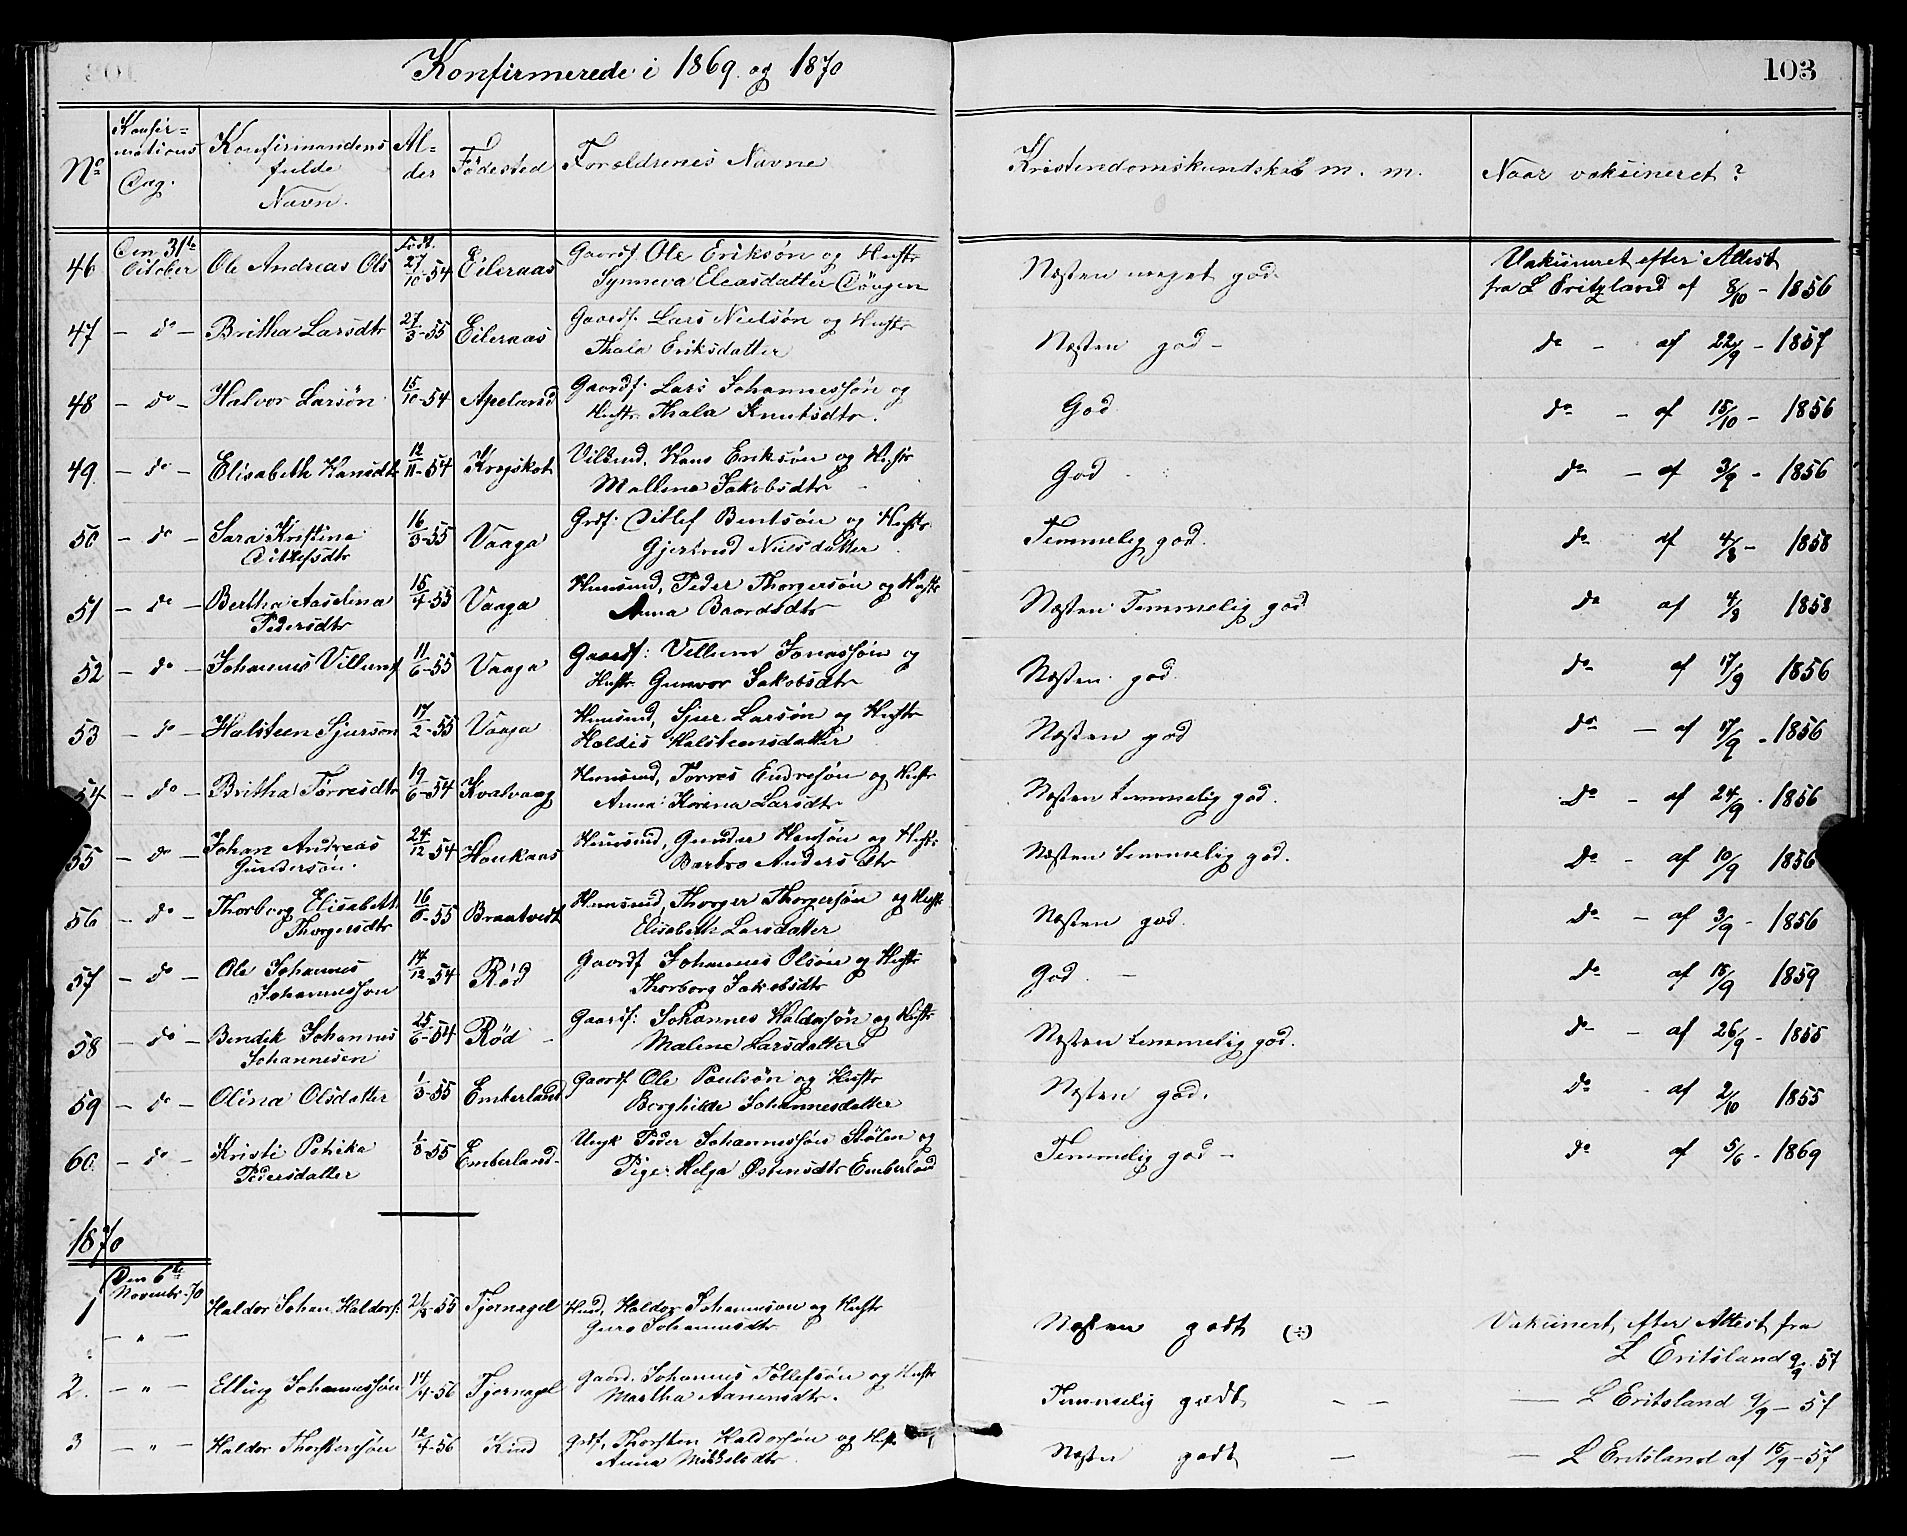 Konfirmerede i 1869 og 1870
103
No
Konfir=
mations
Dag.
Konfirmandens
fulde
Navn.
Al=
der
Fødested
Forældrenes Navne
Kristendomskundskab m. m.
Naar vaksineret?
46 Den 31te October Ole Andreas Ols Født. 27/10-54 Eileraas Gaardf. Ole Eriksøn og Hustr
Synneva Eleasdatter
Næsten meget god.
Vaksineret efter Attest
fra L Eritzland af 8/10 - 1856
47 - do - Britha Larsdtr 27/3-55 Eileraas Gaardf. Lars Nielsøn og Hustr
Thala Eriksdatter
Næsten god -
do - af 22/9 - 1857
48 - do - Halvor Larsøn 15/10-54 Apeland Gaardf. Lars Johannessøn og
Hustr. Thala Knutsdtr.
God
do - af 15/10 - 1856
49 - do - Elisabeth Hansdtr 12/11-54 Hans Eriksøn og Hustr
Mallene Jakobsdtr
God
do - af 3/9 - 1856
50 - do - Sara Kristine
Ditlefsdtr 16/3-55 Vaaga Grdf: Ditlef Bentsøn og Hustr.
Gjertrud Nielsdatter
Temmelig god.
do af 4/8 - 1858
51 - do - Bertha Aaselina
Pedersdtr 15/4-55 Vaaga Huusmd, Peder Thorgersøn og Hustr
Anna Baardsdtr
Næsten Temmelig god
do af 4/8 1858
52 - do - Johannes Villumsf 11/6-55 Vaaga Gaardf: Villum Jonassøn og
Hustr. Gunvor Jakobsdtr
Næsten god
do af 17/9 1856
53 - do - Halsteen Sjurson 17/2-55 Vaaga Huusmd, Sjur Larsøn og Hustr
Haldis Halsteensdatter
Næsten god
do - af 17/9 - 1856
54 - do - Britha Torresdtr 19/6-54 Kvalvaag Huusmd, Torres Endresøn og Hustr
Anna Korina Larsdtr
Næsten temmelig god.
do - af 24/9 - 1856
55 - do - Johan Andreas
Gundersøn. 24/12-54 Haukaas Huusmd, Gunder Hansøn og Hustr
Barbro Anders Dtr
Næsten temmelig god.
do - af 10/9 1856
56 - do - Thorborg Elisabeth
Thorgersdtr 16/6-55 Braatvedt Huusmd, Thorger Thorgersøn og Hustr
Elisabeth Larsdatter
Næsten god.
do - af 3/9 - 1856
57 - do - Ole Johannes
Johannesson 14/12-54 Rød Gaardf Johannes Olsøn og Hustr
Thorborg Jakobsdtr
God. -
do af 15/9 1859
58 - do - Bendik Johannes
Johannesen 25/6-54 Rød - Gaardf: Johannes Haldorsøn og Hustr
Malene Larsdatter
Næsten temmelig god.
do - af 26/9 - 1855
59 - do - Olina Olsdatter 1/3-55 Emberland Gaardf Ole Paulsøn og Hustr
Borghilde Johannesdatter
Næsten god.
do - af 2/10 1855
60 - do - Kristi Petrika
Pedersdatter 1/8-55 Emberland- Ungk Peder Johannessøn Stølen og
Pige: Helga Østensdtr Emberland
Temmelig god -
do af 5/6 - 1869
1870
1 Den 6te Novembr. 70 Haldor Johan Haldorsf. 21/8-55 Tjernagel Huusmd, Haldor Johannesøn og Hustr
- " - Guro Johannesdtr
Næsten godt (÷)
Vaksinert, efter Attest fra
L Eritsland 9/9 57
2. - " - Elling Johannessøn 14/4-56 Tjernagel Gaard. Johannes Tollefsøn og Hustr
Martha Aanensdtr.
Temmelig godt - -
- L Eritsland 9/9 - 57
3 - " - Haldor Thorstensøn 12/4-56 Kind Grdf. Thorsten Haldorsøn og Hustr
Anna Mikkelsdtr
Næsten godt -
- L Eritsland af 15/9-57